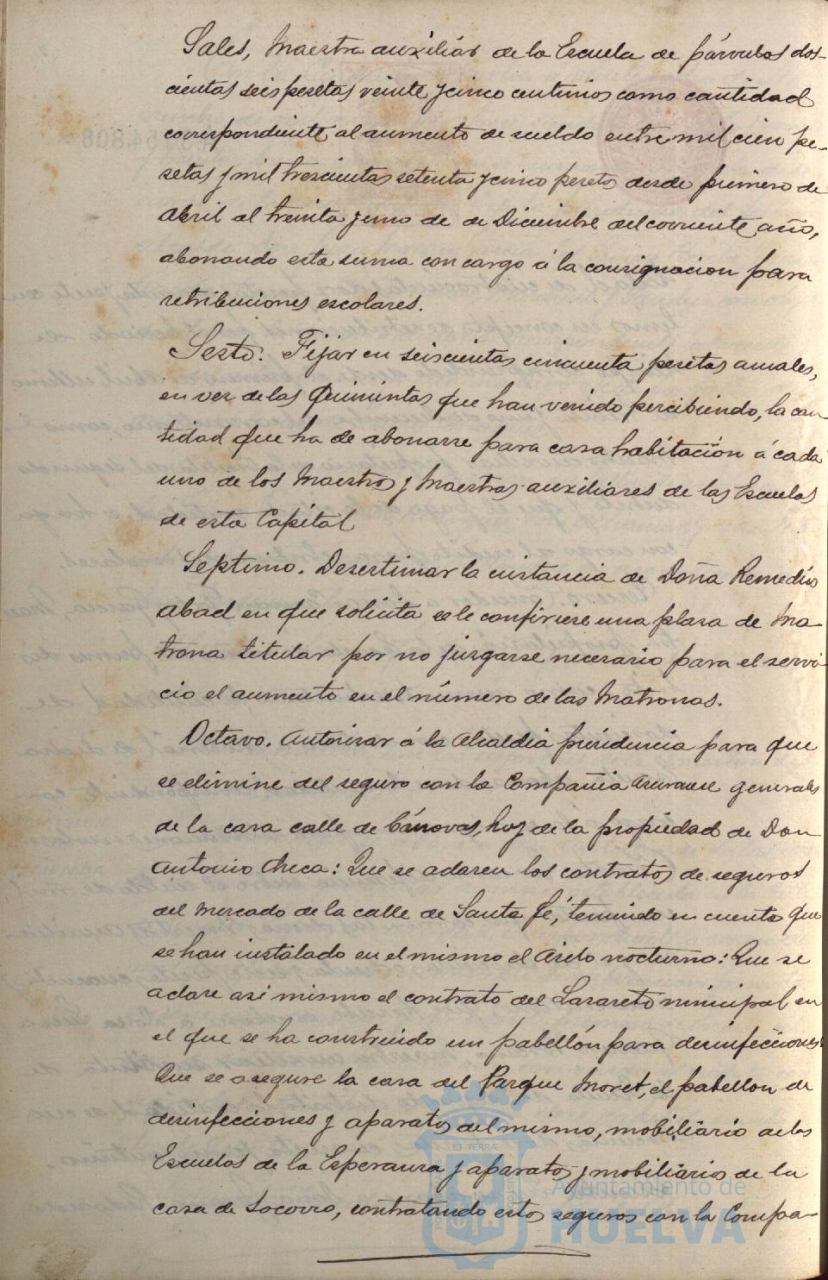 Sales, Maestra auxiliar de la Escuela de párvulos dos-
cientas seis pesetas veinte y cinco centimos como cantidad
correspondiente al aumento de sueldo entre mil cien pe-
setas y mil trescientas setenta y cinco peseta desde primero de
Abril al treinta y uno de de Diciembre del corriente año,
abonando esta suma con cargo á la consignacion para
retribuciones escolares.
Sesto: Fijar en seiscientas cincuenta pesetas anuales,
en vez de las Quinientas que han venido percibiendo, la can
tidad que ha de abonarse para casa habitación á cada
uno de los Maestros y Maestras auxiliares de las Escuelas
de esta Capital
Septimo. Desestimar la instancia de Doña Remedios
Abad en que solicita se le confiriese una plaza de Ma-
trona titular por no juzgarse necesario para el servi-
cio el aumento en el número de las Matronas.
Octavo. Autorizar á la Alcaldia presidencia para que
se elimine del seguro con la Compañia Asurause generales
de la casa calle de Cánovas, hoy de la propiedad de Don
Antonio Checa: Que se aclaren los contratos de seguros
del Mercado de la calle de Santa Fé, teniendo en cuenta que
se han instalado en el mismo el Asilo nocturno: Que se
aclare asi mismo el contrato del Lazareto municipal en
el que se ha construido un pabellón para desinfecciones
Que se asegure la casa del Parque Moret, el pabellon de
desinfecciones y aparatos del mismo, mobiliario de las
Escuelas de la Esperanza y aparatos y mobiliarios de la
casa de Socorro, contratando estos seguros con la Compa-
Ayuntamiento de
HUELVA